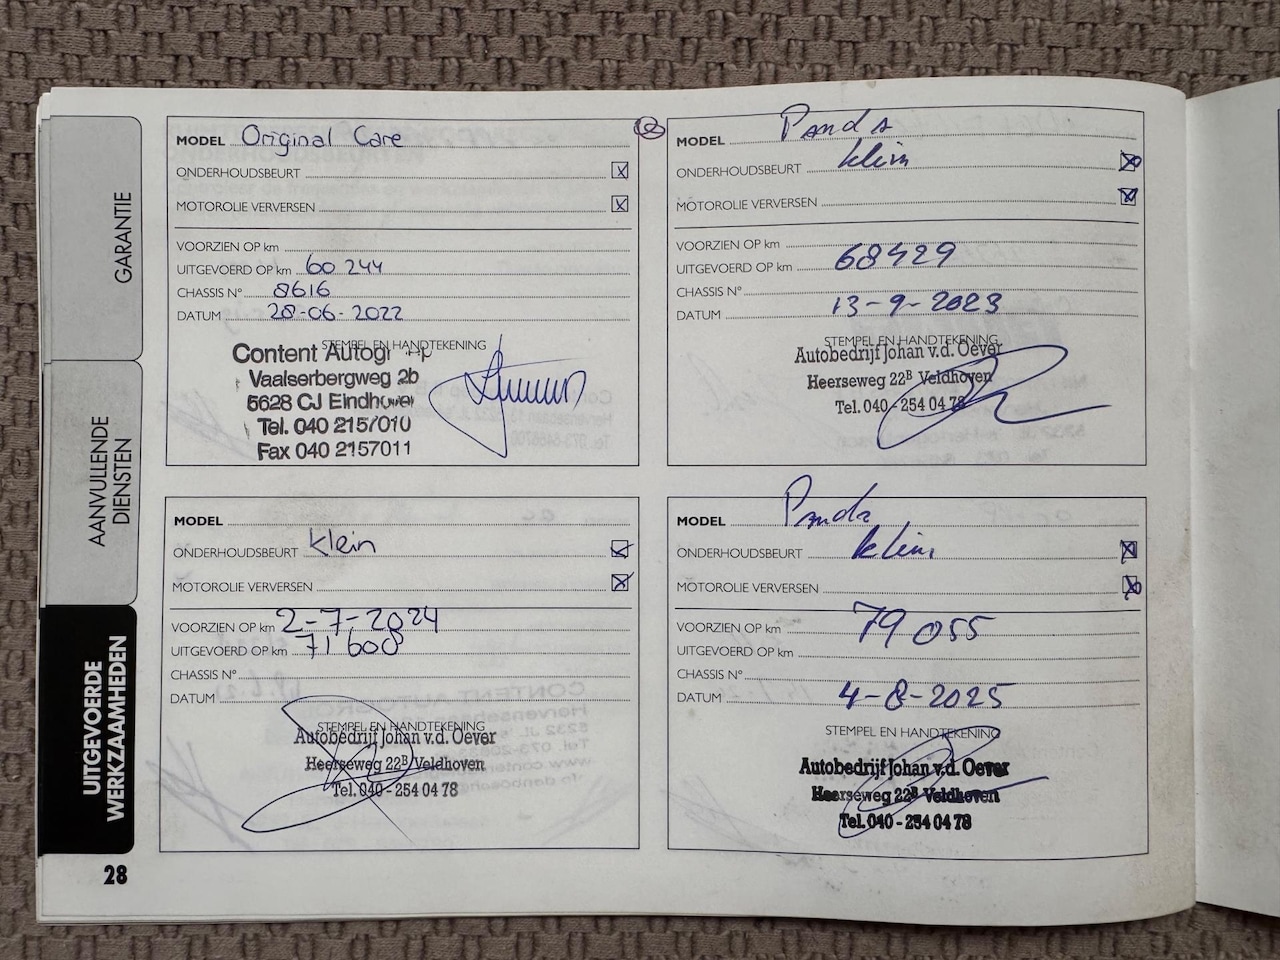 GARANTIE
AANVULLENDE
DIENSTEN
UITGEVOERDE
WERKZAAMHEDEN
28
MODEL Original Care
ONDERHOUDSBEURT X
MOTOROLIE VERVERSEN X
VOORZIEN OP km
UITGEVOERD OP km 60 244
CHASSIS N° 8616
DATUM 28-06-2022
STEMPEL EN HANDTEKENING
Content Autogr
Vaalserbergweg 2b
5628 CJ Eindhoven
Tel. 040 2157010
Fax 040 2157011
MODEL Panda
ONDERHOUDSBEURT klein
MOTOROLIE VERVERSEN
VOORZIEN OP km
UITGEVOERD OP km 68429
CHASSIS N°
DATUM 13-9-2023
STEMPEL EN HANDTEKENING
Autobedrijf Johan v.d. Oever
Heerseweg 22B Veldhoven
Tel. 040-254 04 78
MODEL
ONDERHOUDSBEURT klein
MOTOROLIE VERVERSEN
VOORZIEN OP km 2-7-2024
UITGEVOERD OP km 71 608
CHASSIS N°
DATUM
STEMPEL EN HANDTEKENING
Autobedrijf Johan v.d. Oever
Heerseweg 22B Veldhoven
Tel. 040-254 04 78
MODEL Panda
ONDERHOUDSBEURT klein
MOTOROLIE VERVERSEN
VOORZIEN OP km 79055
UITGEVOERD OP km
CHASSIS N°
DATUM 4-8-2025
STEMPEL EN HANDTEKENING
Autobedrijf Johan v.d. Oever
Heerseweg 22B Veldhoven
Tel. 040-254 04 78